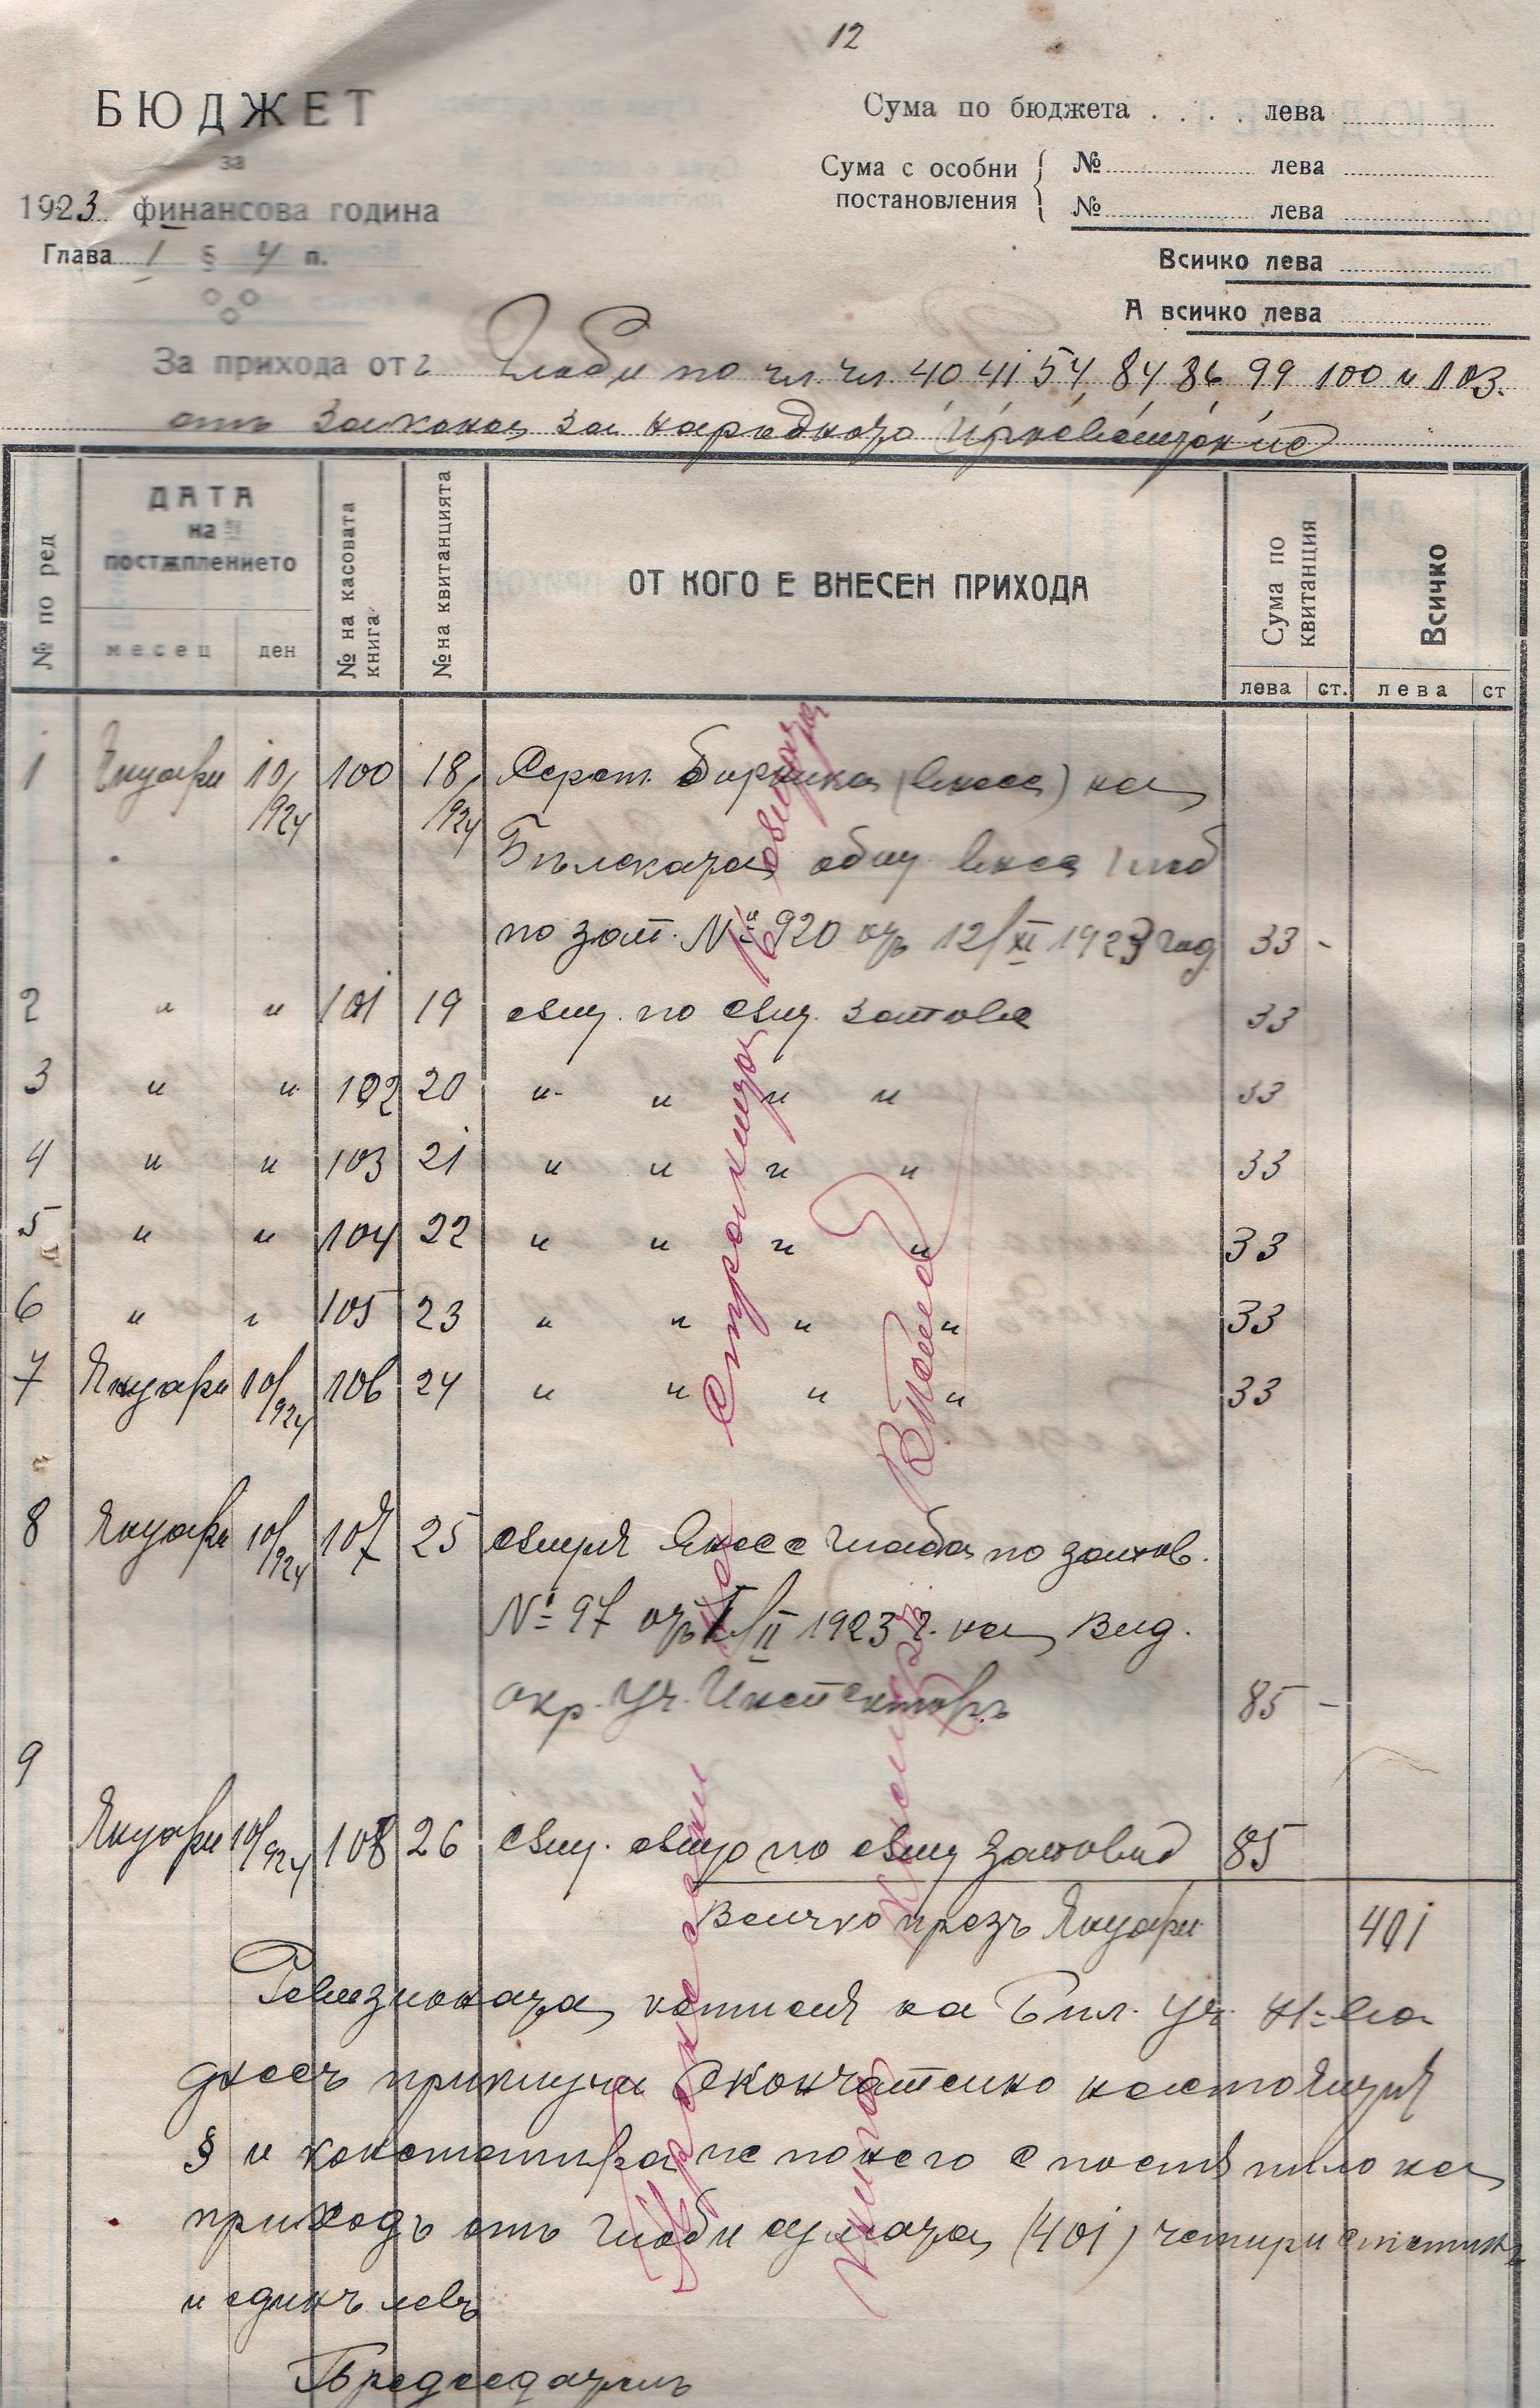 12
БЮДЖЕТ
за
1923 финансова година
Глава I § 4 п.
Сума по бюджета . . . . лева
Сума с особни постановления
№ лева
№ лева
Всичко лева
А всичко лева
За прихода от глоби по чл. чл. 40, 41, 54, 84, 86, 99 100 и 103.
отъ Закона за народното
№ по ред
ДАТА на постѫплението
месец ден
№ на касовата книга
№ на квитанцията
ОТ КОГО Е ВНЕСЕН ПРИХОДА
Сума по квитанция
Всичко
лева ст. лева ст
1 Януари 10/924 100 18/924 Секрет. Бирника (внесе) на
общ. внесе глоб
по зап. № 920 отъ 12/XI 1923 год 33 -
2 " " 101 19 същ. по същ. заповед 33
3 " " 102 20 " " " " 33
4 " " 103 21 " " " " 33
5 " " 104 22 " " " " 33
6 " " 105 23 " " " " 33
7 Януари 10/924 106 24 " " " " 33
8 Януари 10/924 107 25 същия внесе глоба по запов.
№ 97 отъ /II 1923 г. на Вид.
окр. Уч. Инспекторъ 85 -
9
Януари 10/924 108 26 същ. също по същ заповед 85
Всичко презъ Януари 401
Ревизионата комисия на Бѣл. Уч. Н-во
днесъ приключи окончателно настоящия
§ и констатира че по него е постѫпило на
приходъ отъ глоби сумата (401) четиристотинъ
и единъ левъ
Председатель